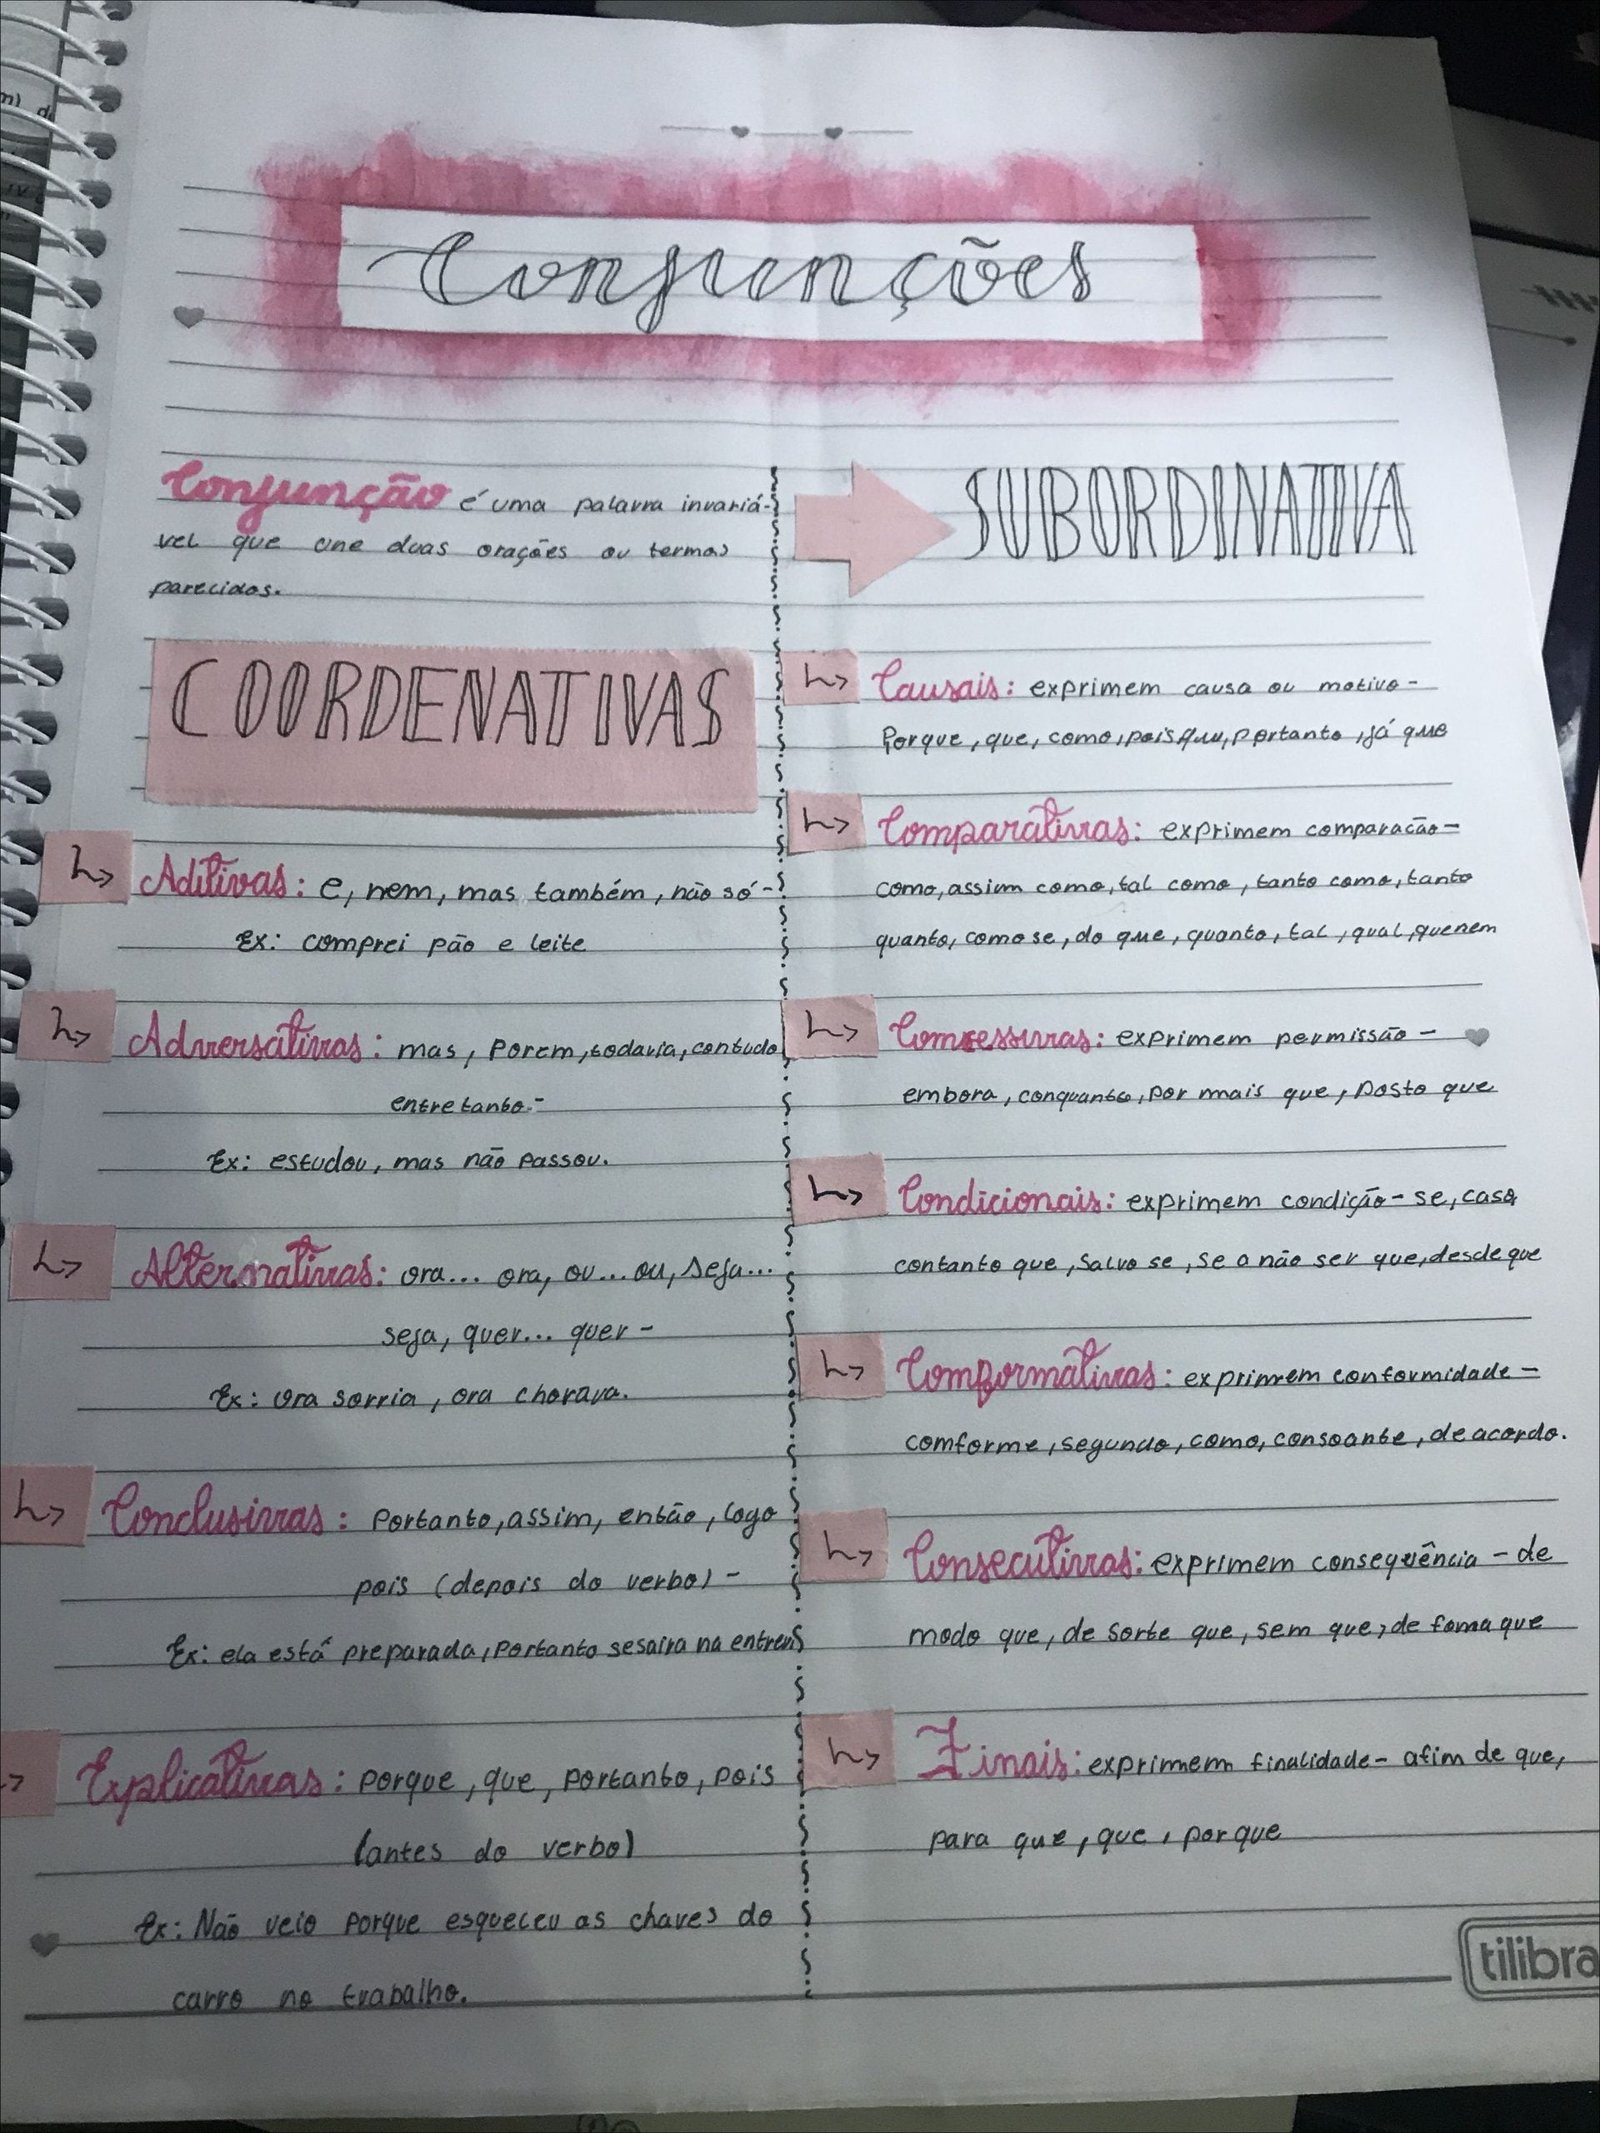 Conjunções
Conjunção é uma palavra invariá-
vel que une duas orações ou termos
parecidos.
COORDENATIVAS
Aditivas: e, nem, mas também, não só-
Ex: comprei pão e leite
Adversativas: mas, porem, todavia, contudo
entretanto-
Ex: estudou, mas não passou.
Alternativas: ora... ora, ou... ou, seja...
seja, quer... quer -
Ex: ora sorria, ora chorava.
Conclusivas: portanto, assim, então, logo
pois (depois do verbo) -
Ex: ela está preparada, portanto se saira na
Explicativas: porque, que, portanto, pois
(antes do verbo)
Ex: Não veio porque esqueceu as chaves do
carro no trabalho.
SUBORDINATIVA
Causais: exprimem causa ou motivo -
Porque, que, como, pois que, portanto, já que
Comparativas: exprimem comparacão-
como, assim como, tal como, tanto como, tanto
quanto, como se, do que, quanto, tal, qual, que nem
Concessivas: exprimem permissão -
embora, conquanto, por mais que, posto que
Condicionais: exprimem condição - se, caso
contanto que, salvo se, se a não ser que, desde que
Comformativas: exprimem conformidade -
comforme, segundo, como, consoante, de acordo.
Consecutivas: exprimem consequência - de
modo que, de sorte que, sem que, de foma que
Finais: exprimem finalidade - afim de que,
para que, que, porque
tilibra